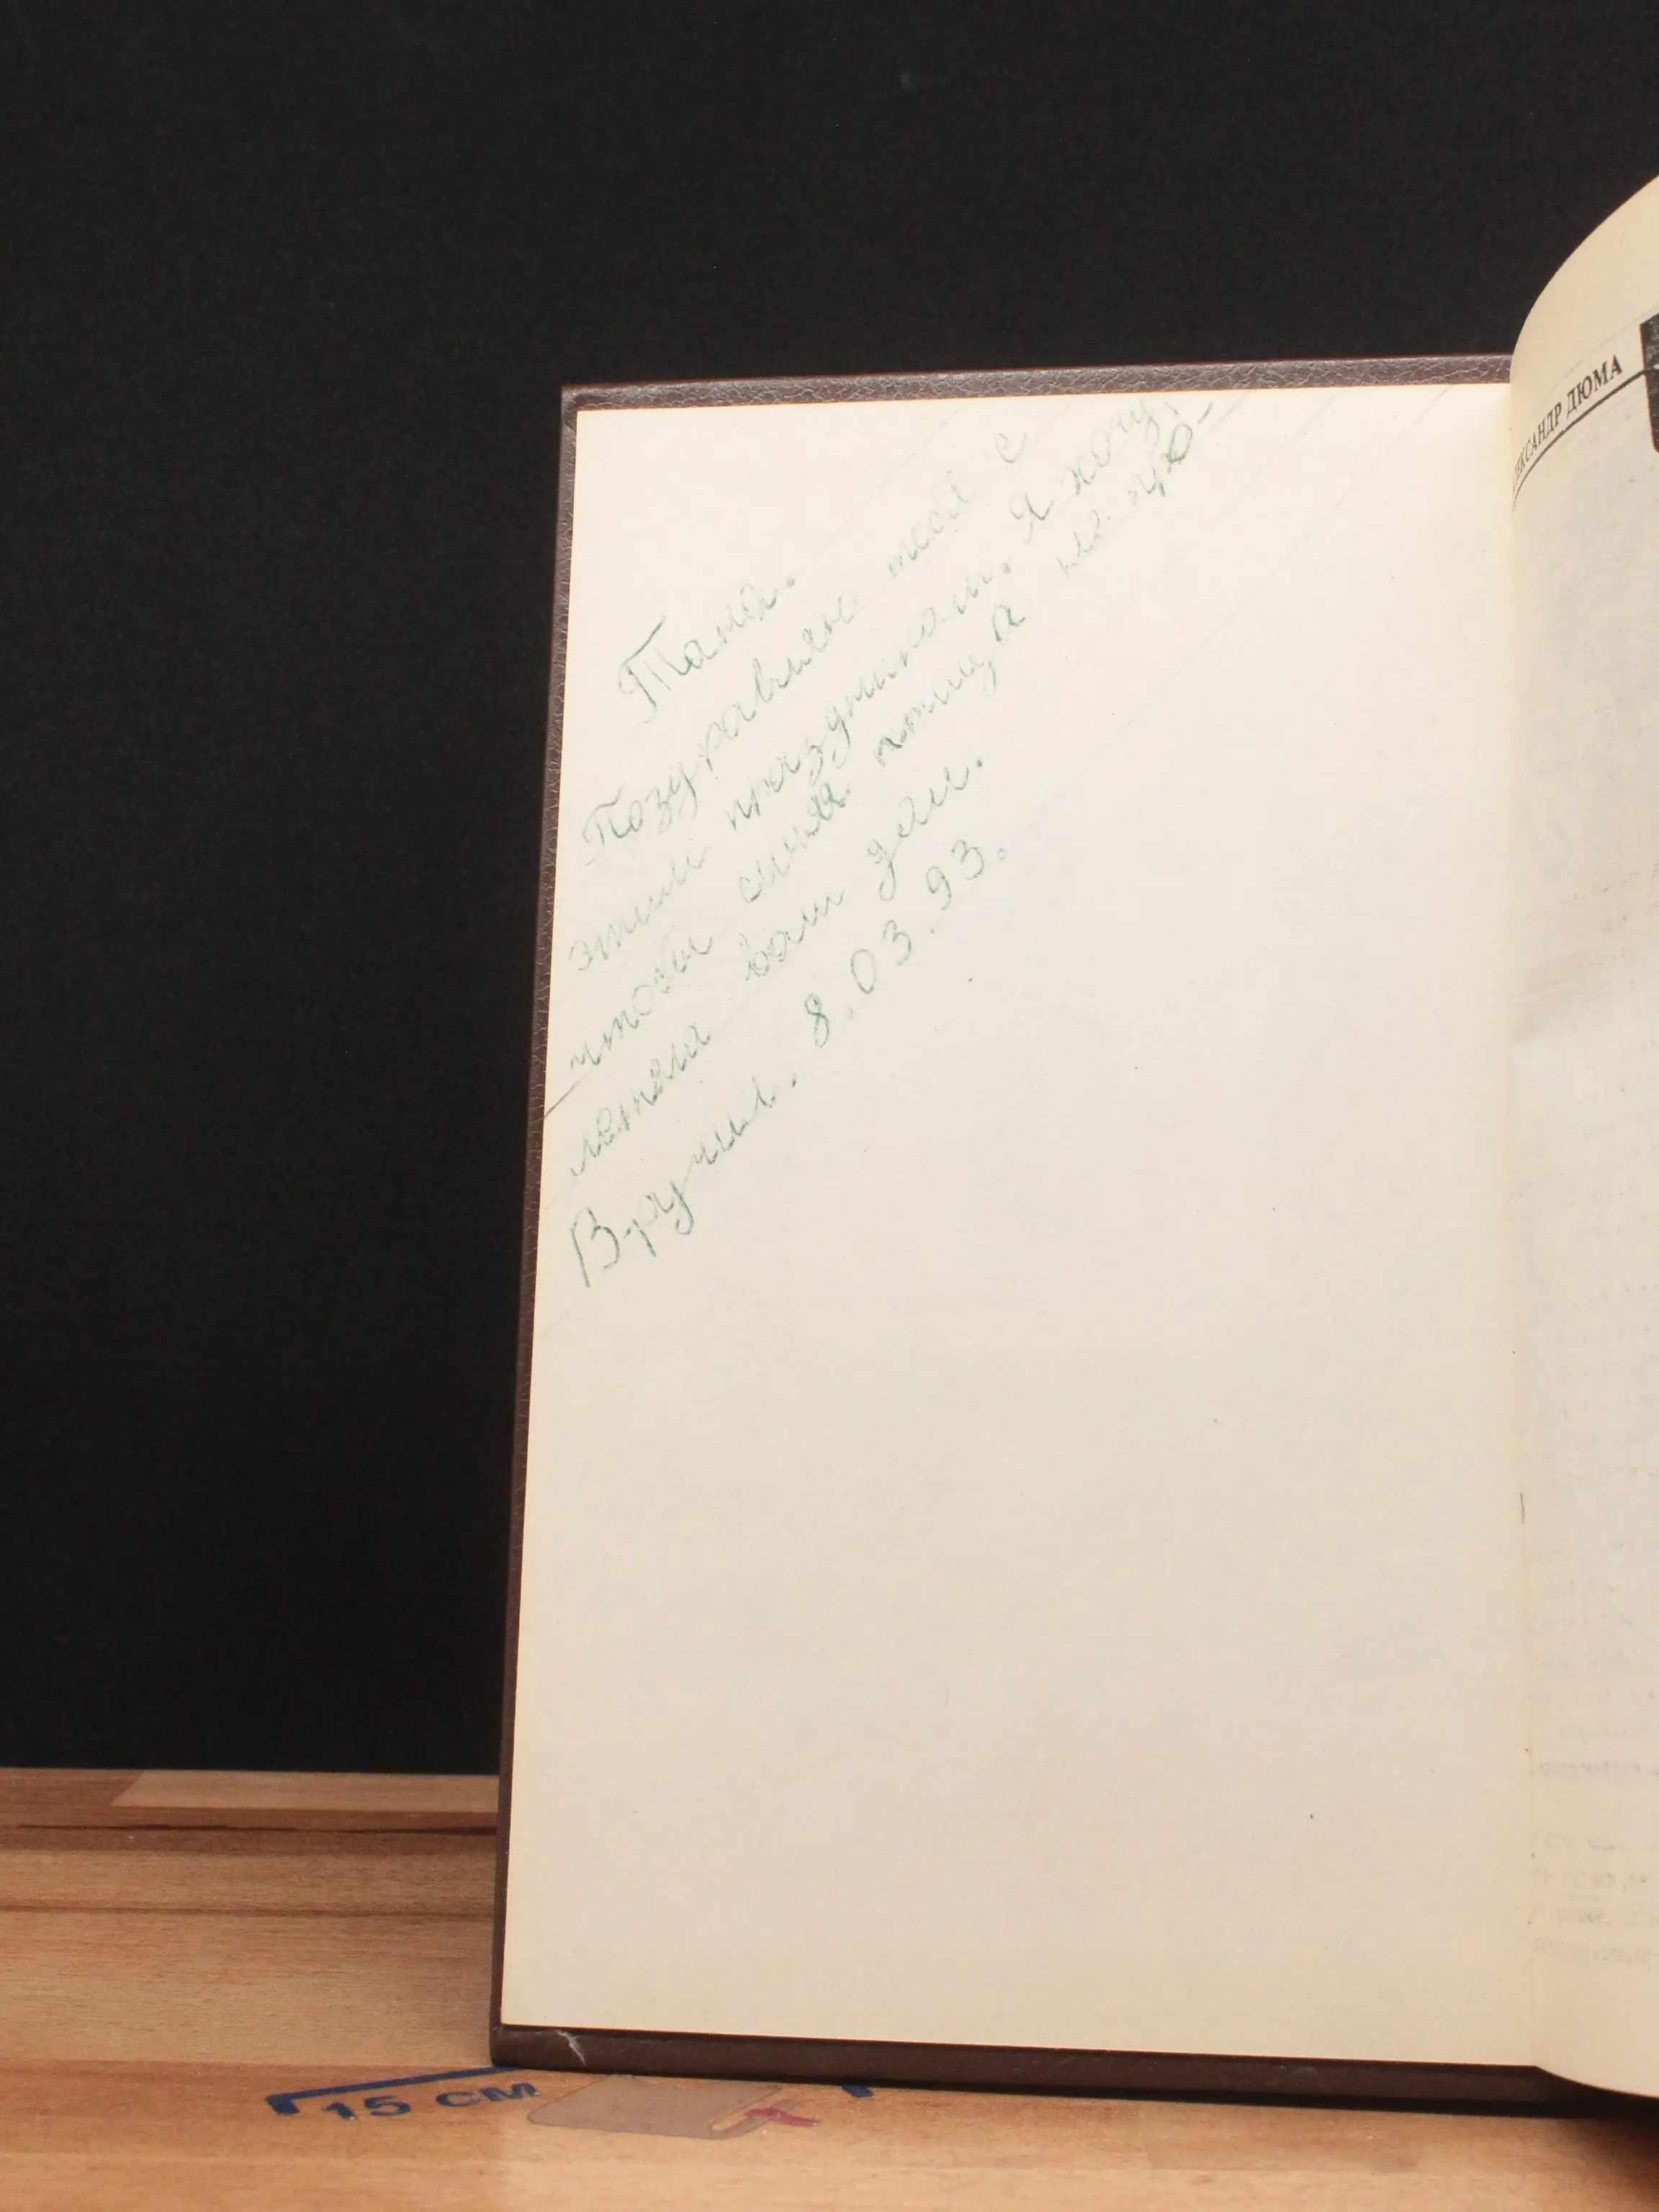 Поздравляю тебя с
этим праздником. Я хочу,
чтобы синяя птица не про-
летела ваш дом.
Вручил. 8.03.93.
ЛЕКСАНДР ДЮМА
15 СМ